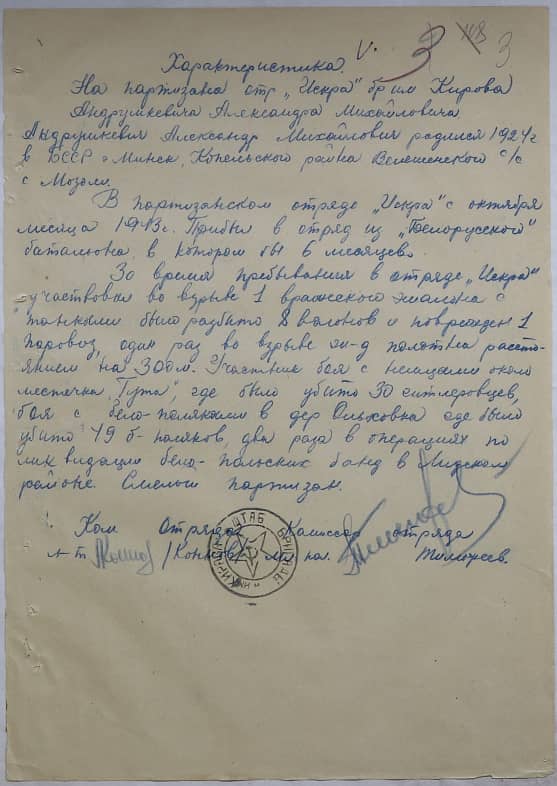 V. 3 118 3
Характеристика.
На партизана отр „Искра" бр им Кирова
Андрушкевича Александра Михайловича.
Андрушкевич Александр Михайлович родился 1924г
в БССР г Минск, Копельского район Велешенского с/с
с Мозоли.
В партизанском отряде „Искра" с октября
месяца 1943г. Прибыл в отряд из „Белорусского"
батальона, в котором был 6 месяцев.
За время пребывания в отряде „Искра"
участвовал во взрыве 1 вражеского эшалона с
танками было разбито 8 вагонов и поврежден 1
паровоз, один раз во взрыве ж-д полотна рассто-
янием на 300 м. Участник боя с немцами около
местечка „Гута", где было убито 30 гитлеровцев,
боя с бело-поляками в дер Ольховка где было
убито 49 б-поляков, два раза в операциях по
ликвидации бело-польских банд в Лидском
районе. Смелый партизан.
Ком Отряда Комиссар отряда
л-т мл пол.
ШТАБ БРИГАДЫ им КИРОВА